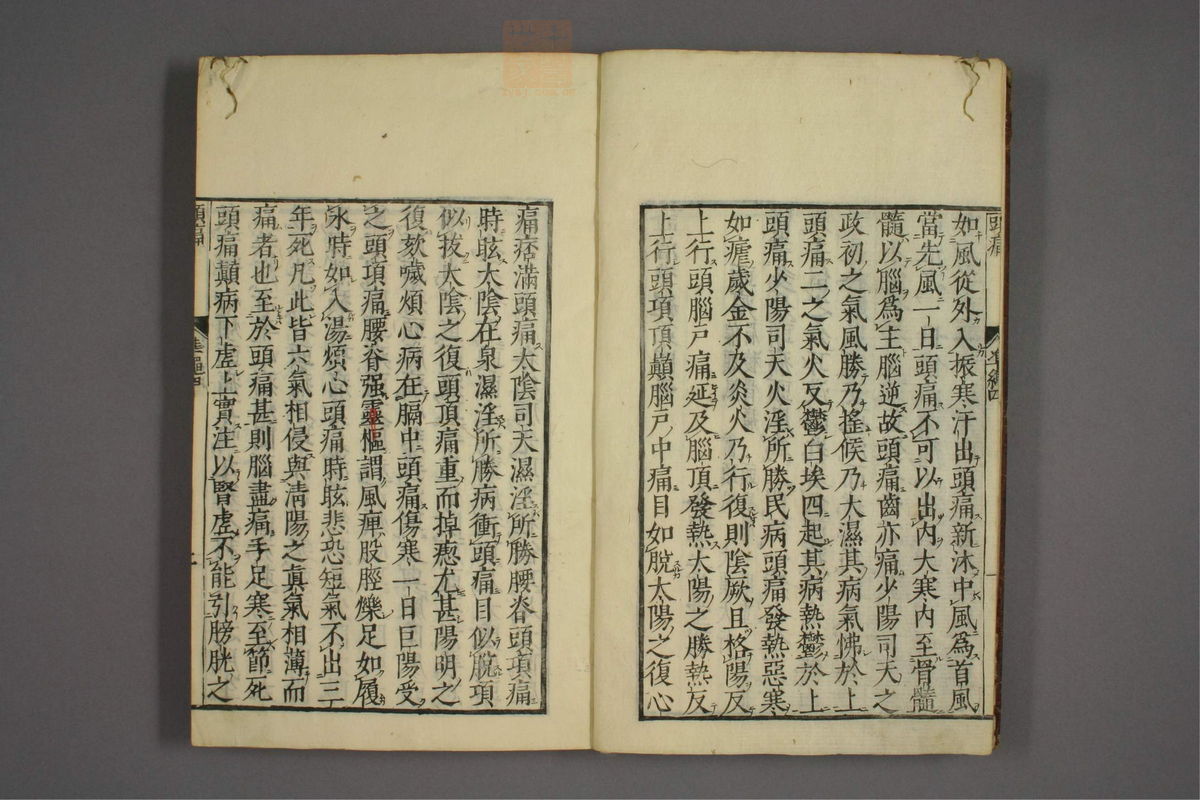 頭痛
如風從外入振寒汗出頭痛新沐中風爲首風
當先風一日頭痛不可以出內大寒內至骨髓
髓以腦爲主腦逆故頭痛齒亦痛少陽司天之
政初之氣風勝乃搖候乃大濕其病氣怫於上
頭痛二之氣火反鬱白埃四起其病熱鬱於上
頭痛少陽司天火淫所勝民病頭痛發熱惡寒
如瘧歲金不及炎火乃行復則陰厥且格陽反
上行頭腦戶痛延及腦頂發熱太陽之勝熱反
上行頭項頂巔腦戶中痛目如脫太陽之復心
痛痞滿頭痛太陰司天濕淫所勝腰脊頭項痛
時眩太陰在泉濕淫所勝病衝頭痛目似脫項
似拔太陰之復頭頂痛重而掉瘛尤甚陽明之
復欬噦煩心病在膈中頭痛傷寒一日巨陽受
之頭項痛腰脊强靈樞謂風痺股脛爍足如履
氷時如入湯煩心頭痛時眩悲恐短氣不出三
年死凡此皆六氣相侵與淸陽之眞氣相薄而
痛者也至於頭痛甚則腦盡痛手足寒至節死
頭痛顚病下虛上實注以腎虛不能引膀胱之
頭痛